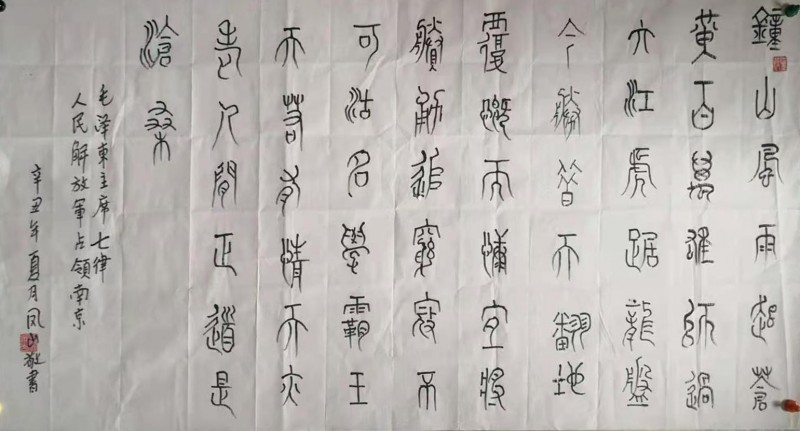 鐘山風雨起蒼
黄百萬雄師過
大江虎踞龍盤
今勝昔天翻地
覆慨而慷宜將
賸勇追窮寇不
可沽名學霸王
天若有情天亦
老人間正道是
滄桑
毛泽東主席七律
人民解放軍占領南京
辛丑年夏月凤山敬書